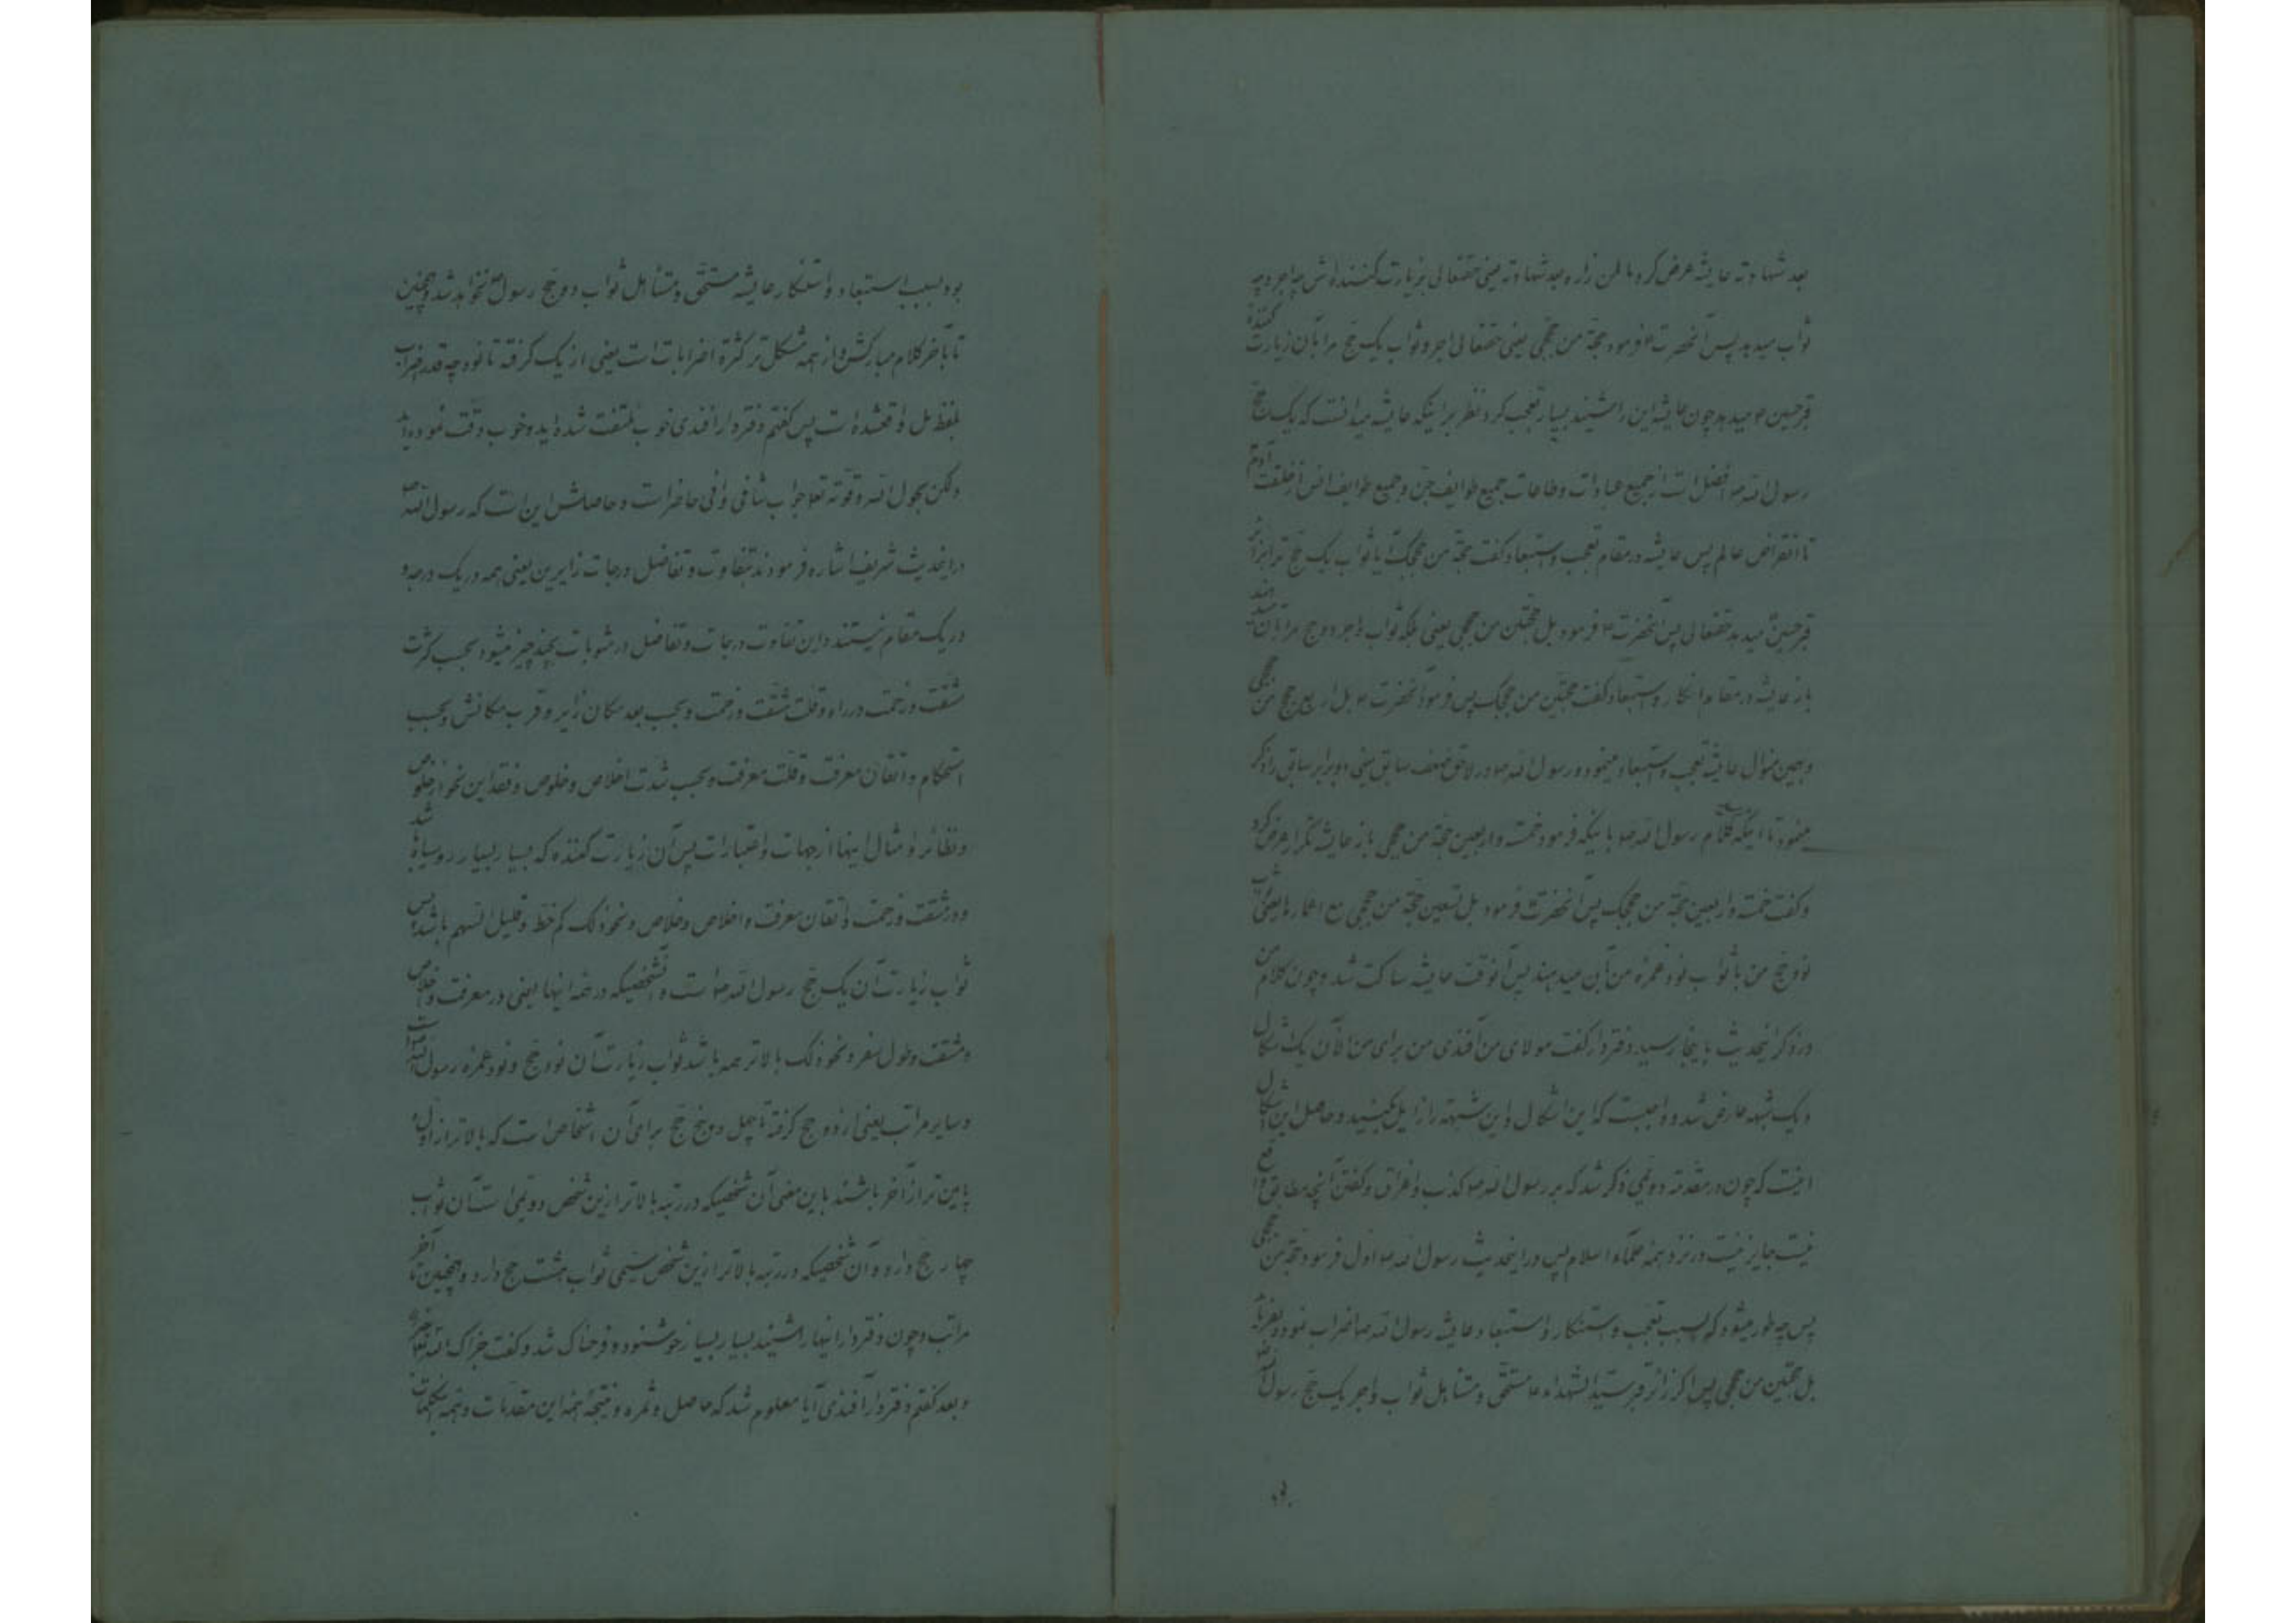 بعد شهادته عایشه عرض کرد ما لمن زاره بعد شهادته یعنی حقتعالی بزیارت کننده‌اش چه اجر و چه
ثواب میدهد پس آنحضرت ص فرمود حجّة من حججی یعنی حقتعالی اجر و ثواب یک حج مرا بآن زیارت کننده
قبر حسین ع میدهد چون عایشه این را شنید بسیار تعجب کرد نظر بر اینکه عایشه میدانست که یک حج
رسول الله ص افضل است از جمیع عبادات و طاعات جمیع طوایف جن و جمیع طوایف انس از خلقت آدم
تا انقراض عالم پس عایشه در مقام تعجب و استبعاد گفت حجّة من حججک یا ثواب یک حج ترا بزائر
قبر حسین میدهد حقتعالی پس آنحضرت ص فرمود بل حجّتین من حججی یعنی بلکه ثواب و اجر دو حج مرا بآن میدهند
باز عایشه در مقام انکار و استبعاد گفت حجّتین من حججک پس فرمود آنحضرت ص بل اربع حجج من حججی
و همین منوال عایشه تعجب و استبعاد مینمود و رسول الله ص در لاحق ضعف سابق یعنی دو برابر سابق را ذکر
مینمود تا اینکه کلام رسول الله ص باینکه فرمود خمسة و اربعین حجّة من حججی باز عایشه تکرار عرض کرد
و گفت خمسة و اربعین حجّة من حججک پس آنحضرت ص فرمود بل تسعین حجّة من حججی مع اعمارها یعنی ثواب
نود حج من با ثواب نود عمرهٔ من بآن میدهند پس آنوقت عایشه ساکت شد و چون کلام من
در ذکر اینحدیث باینجا رسید دفتردار گفت مولای من آفندی من برای من الآن یک اشکال
و یک شبهه عارض شد و واجبست که این اشکال و این شبهه را زایل بکنید و حاصل این اشکال
اینست که چون در مقدمه دویمی ذکر شد که بر رسول الله ص کذب و اغراق و گفتن آنچه مطابق واقع
نیست جایز نیست در نزد همهٔ علماء اسلام پس در اینحدیث رسول الله ص اول فرمود حجّة من حججی
پس چه طور میشود که بسبب تعجب و استنکار و استبعاد عایشه رسول الله ص اضراب نمود و بفرماید
بل حجّتین من حججی پس اگر زائر قبر سید الشهداء ع مستحق و متأهل ثواب و اجر یک حج رسول الله
بود
بود بسبب استبعاد و استنکار عایشه مستحق و متأهل ثواب دو حج رسول ص نخواهد شد و همچنین
تا بآخر کلام مبارکش و از همه مشکل‌تر کثرة اضرابات است یعنی از یک گرفته تا نود چه قدر اضراب
بلفظ بل واقعشده است پس گفتم دفتردار افندی خوب ملتفت شده‌اید و خوب دقت نموده‌اید
ولکن بحول الله و قوته تعالی جواب شافی و وافی حاضر است و حاصلش این است که رسول الله ص
در اینحدیث شریف اشاره فرمودند بتفاوت و تفاضل درجات زایرین یعنی همه در یک درجه و
در یک مقام نیستند و این تفاوت درجات و تفاضل در مثوبات بچند چیز میشود بحسب کثرت
مشقت و زحمت در راه و قلت مشقت و زحمت و بحسب بعد مکان زایر و قرب مکانش و بحسب
استحکام و اتقان معرفت و قلت معرفت و بحسب شدت اخلاص و خلوص و فقد این نحو از خلوص
و نظائر و امثال اینها از جهات و اعتبارات پس آن زیارت کننده که بسیار بسیار رو سیاه باشد
و در مشقت و زحمت و اتقان معرفت و اخلاص و خلاص و نحو ذلک کم حظ و قلیل السهم باشد پس
ثواب زیارت آن یک حج رسول الله ص است و شخصیکه در همه اینها یعنی در معرفت و اخلاص
و مشقت و طول سفر و نحو ذلک بالاتر همه باشد ثواب زیارت آن نود حج و نود عمره رسول الله ص است
و سایر مراتب یعنی از دو حج گرفته تا چهل و پنج حج برای آن اشخاص است که بالاتر از اول و
پایین‌تر از آخر باشند باین معنی آن شخصیکه در رتبه بالاتر ازین شخص دویمی است آن ثواب
چهار حج دارد و آن شخصیکه در رتبه بالاتر ازین شخص سیمی ثواب هشت حج دارد و همچنین تا آخر
مراتب و چون دفتردار اینها را شنید بسیار بسیار خوشنود و فرحناک شد و گفت جزاک الله تعالی خیرا
و بعد گفتم دفتردار آفندی آیا معلوم شد که حاصل و ثمره و نتیجهٔ همه این مقدمات و همه